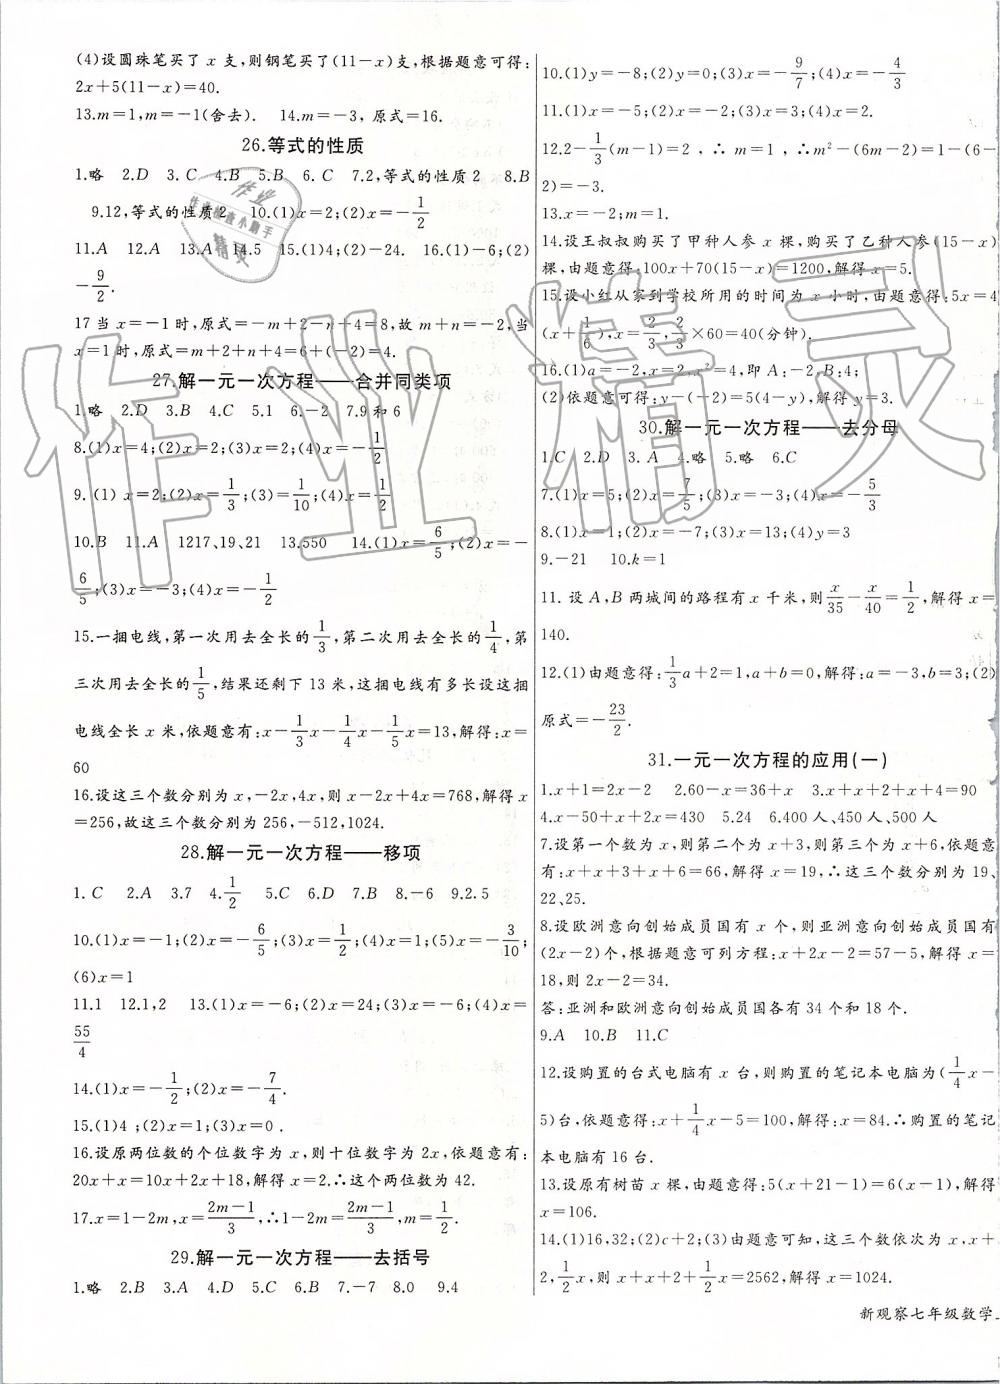 (4)设圆珠笔买了 x 支,则钢笔买了(11－x)支,根据题意可得:
2x＋5(11－x)＝40.
13.m＝1,m＝－1(舍去). 14.m＝－3, 原式＝16.
26.等式的性质
1.略 2.D 3.C 4.B 5.B 6.C 7.2,等式的性质 2 8.B
9.12,等式的性质2 10.(1)x＝2;(2)x＝－1/2
11.A 12.A 13.A 14.5 15.(1)4;(2)－24. 16.(1)－6;(2)
－9/2.
17 当 x＝－1 时,原式＝－m＋2－n＋4＝8,故 m＋n＝－2,当
x＝1 时,原式＝m＋2＋n＋4＝6＋(－2)＝4.
27.解一元一次方程——合并同类项
1.略 2.D 3.B 4.C 5.1 6.－2 7.9 和 6
8.(1)x＝4;(2)x＝2;(3)x＝2;(4)x＝－1/2
9.(1) x＝2;(2)x＝1/3;(3)＝1/10;(4)x＝1/2
10.B 11.A 1217、19、21 13.550 14.(1)x＝6/5;(2)x＝－
6/5;(3)x＝－3;(4)x＝－1/2
15.一捆电线,第一次用去全长的1/3,第二次用去全长的1/4,第
三次用去全长的1/5,结果还剩下 13 米,这捆电线有多长设这捆
电线全长 x 米,依题意有:x－1/3x－1/4x－1/5x＝13,解得:x＝
60
16.设这三个数分别为 x,－2x,4x,则 x－2x＋4x＝768,解得 x
＝256,故这三个数分别为 256,－512,1024.
28.解一元一次方程——移项
1.C 2.A 3.7 4.1/2 5.C 6.D 7.B 8.－6 9.2.5
10.(1)x＝－1;(2)x＝－6/5;(3)x＝1/2;(4)x＝1;(5)x＝－3/10;
(6)x＝1
11.1 12.1,2 13.(1)x＝－6;(2)x＝24;(3)x＝－6;(4)x＝
55/4
14.(1)x＝－1/2;(2)x＝－7/4.
15.(1)4 ;(2)x＝1;(3)x＝0 .
16.设原两位数的个位数字为 x,则十位数字为 2x,依题意有:
20x＋x＝10x＋2x＋18,解得 x＝2.∴这个两位数为 42.
17.x＝1－2m,x＝2m－1/3,∴1－2m＝2m－1/3,m＝1/2.
29.解一元一次方程——去括号
1.略 2.B 3.A 4.D 5.C 6.B 7.－7 8.0 9.4
10.(1)y＝－8;(2)y＝0;(3)x＝－9/7;(4)x＝－4/3
11.(1)x＝－5;(2)x＝－2;(3)x＝4;(4)x＝2.
12.2－1/3(m－1)＝2 , ∴ m＝1, ∴ m²－(6m－2)＝1－(6－
2)＝－3.
13.x＝－2;m＝1.
14.设王叔叔购买了甲种人参 x 棵,购买了乙种人参(15－x)
棵,由题意得:100x＋70(15－x)＝1200,解得 x＝5.
15.设小红从家到学校所用的时间为 x 小时,由题意得:5x＝4
(x＋1/6),x＝2/3,2/3×60＝40(分钟).
16.(1)a＝－2,x＝2,x²＝4,即 A:－2,B:4;
(2)依题意可得:y－(－2)＝5(4－y),解得 y＝3.
30.解一元一次方程——去分母
1.C 2.D 3.A 4.略 5.略 6.C
7.(1)x＝5;(2)x＝7/5;(3)x＝－3;(4)x＝－5/3
8.(1)x＝1;(2)x＝－7;(3)x＝13;(4)x＝2
9.－21 10.k＝1
11. 设 A,B 两城间的路程有 x 千米,则x/35－x/40＝1/2,解得 x＝
140.
12.(1)由题意得:1/3a＋2＝1,a＋b＝0,解得:a＝－3,b＝3;(2)
原式＝－23/2.
31.一元一次方程的应用(一)
1.x＋1＝2x－2 2.60－x＝36＋x 3.x＋x＋2＋x＋4＝90
4.x－50＋x＋2x＝430 5.24 6.400 人、450 人、500 人
7.设第一个数为 x,则第二个为 x＋3,则第三个为 x＋6,依题意
有:x＋x＋3＋x＋6＝66,解得 x＝19,∴这三个数分别为 19、
22、25.
8.设欧洲意向创始成员国有 x 个,则亚洲意向创始成员国有
(2x－2)个,根据题意可列方程:x＋2x－2＝57－5,解得 x＝
18,则 2x－2＝34.
答:亚洲和欧洲意向创始成员国各有 34 个和 18 个.
9.A 10.B 11.C
12.设购置的台式电脑有 x 台,则购置的笔记本电脑为(1/4x－
5)台,依题意得:x＋1/4x－5＝100,解得:x＝84.∴购置的笔记
本电脑有 16 台.
13.设原有树苗 x 棵,由题意得:5(x＋21－1)＝6(x－1),解得
x＝106.
14.(1)16,32;(2)c＋2;(3)由题意可知,这三个数依次为 x,x＋
2,1/2x,则 x＋x＋2＋1/2x＝2562,解得 x＝1024.
新观察七年级数学
作业精灵